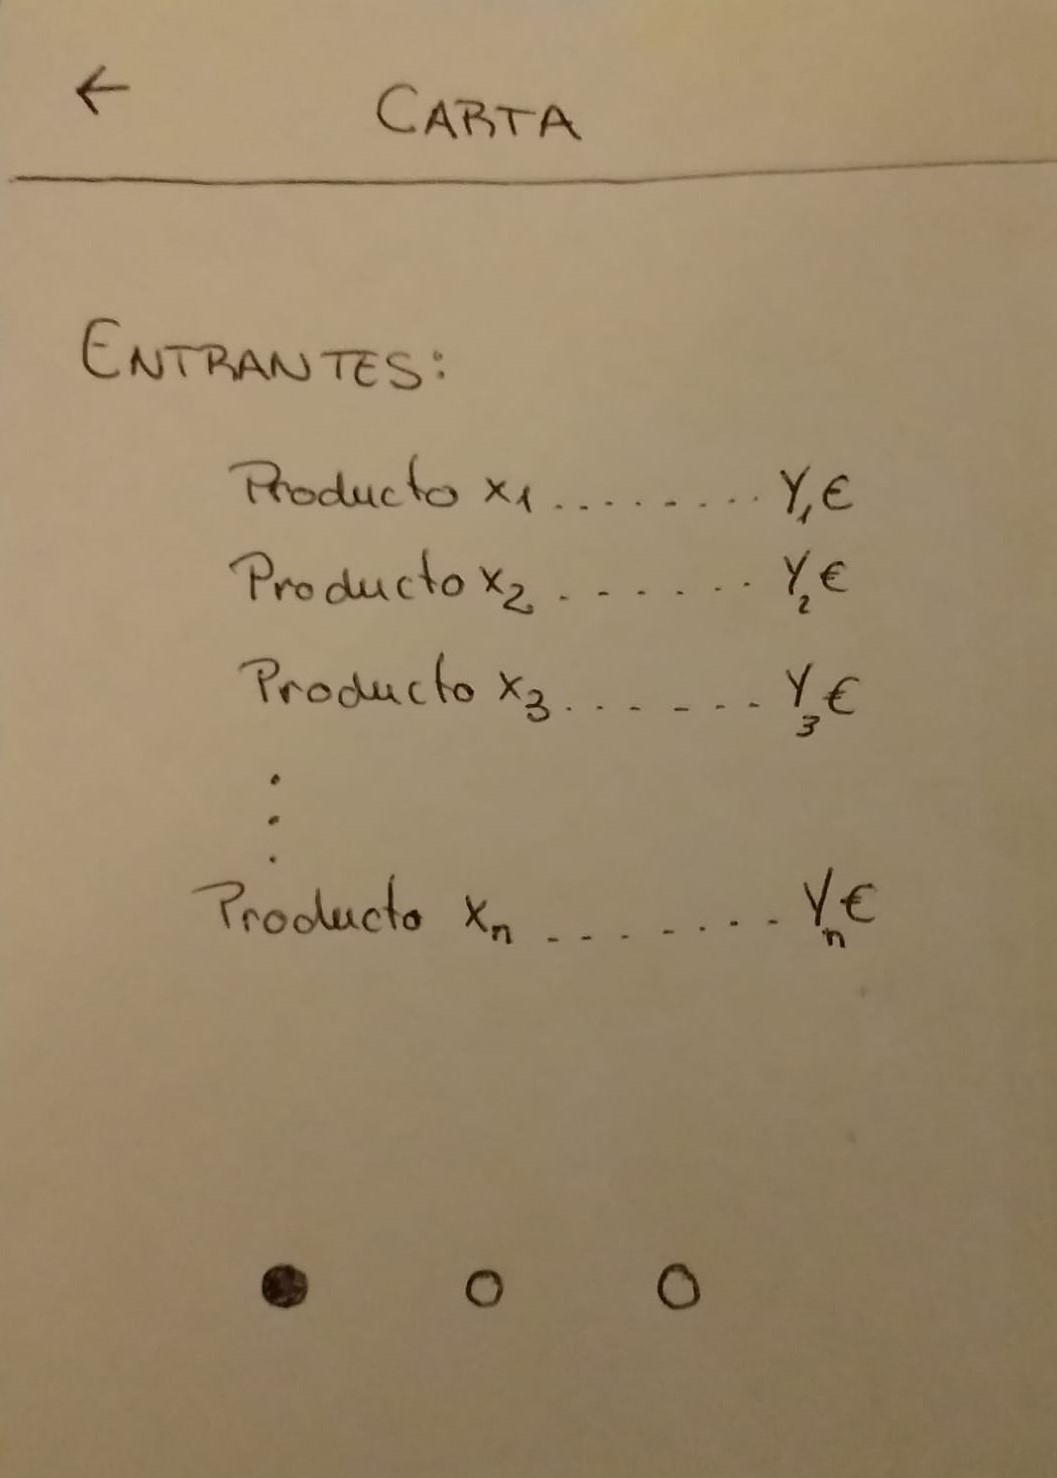 ← CARTA
ENTRANTES:
Producto x₁ ........ y₁€
Producto x₂ ....... y₂€
Producto x₃ ....... y₃€
⋮
Producto xₙ ....... yₙ€